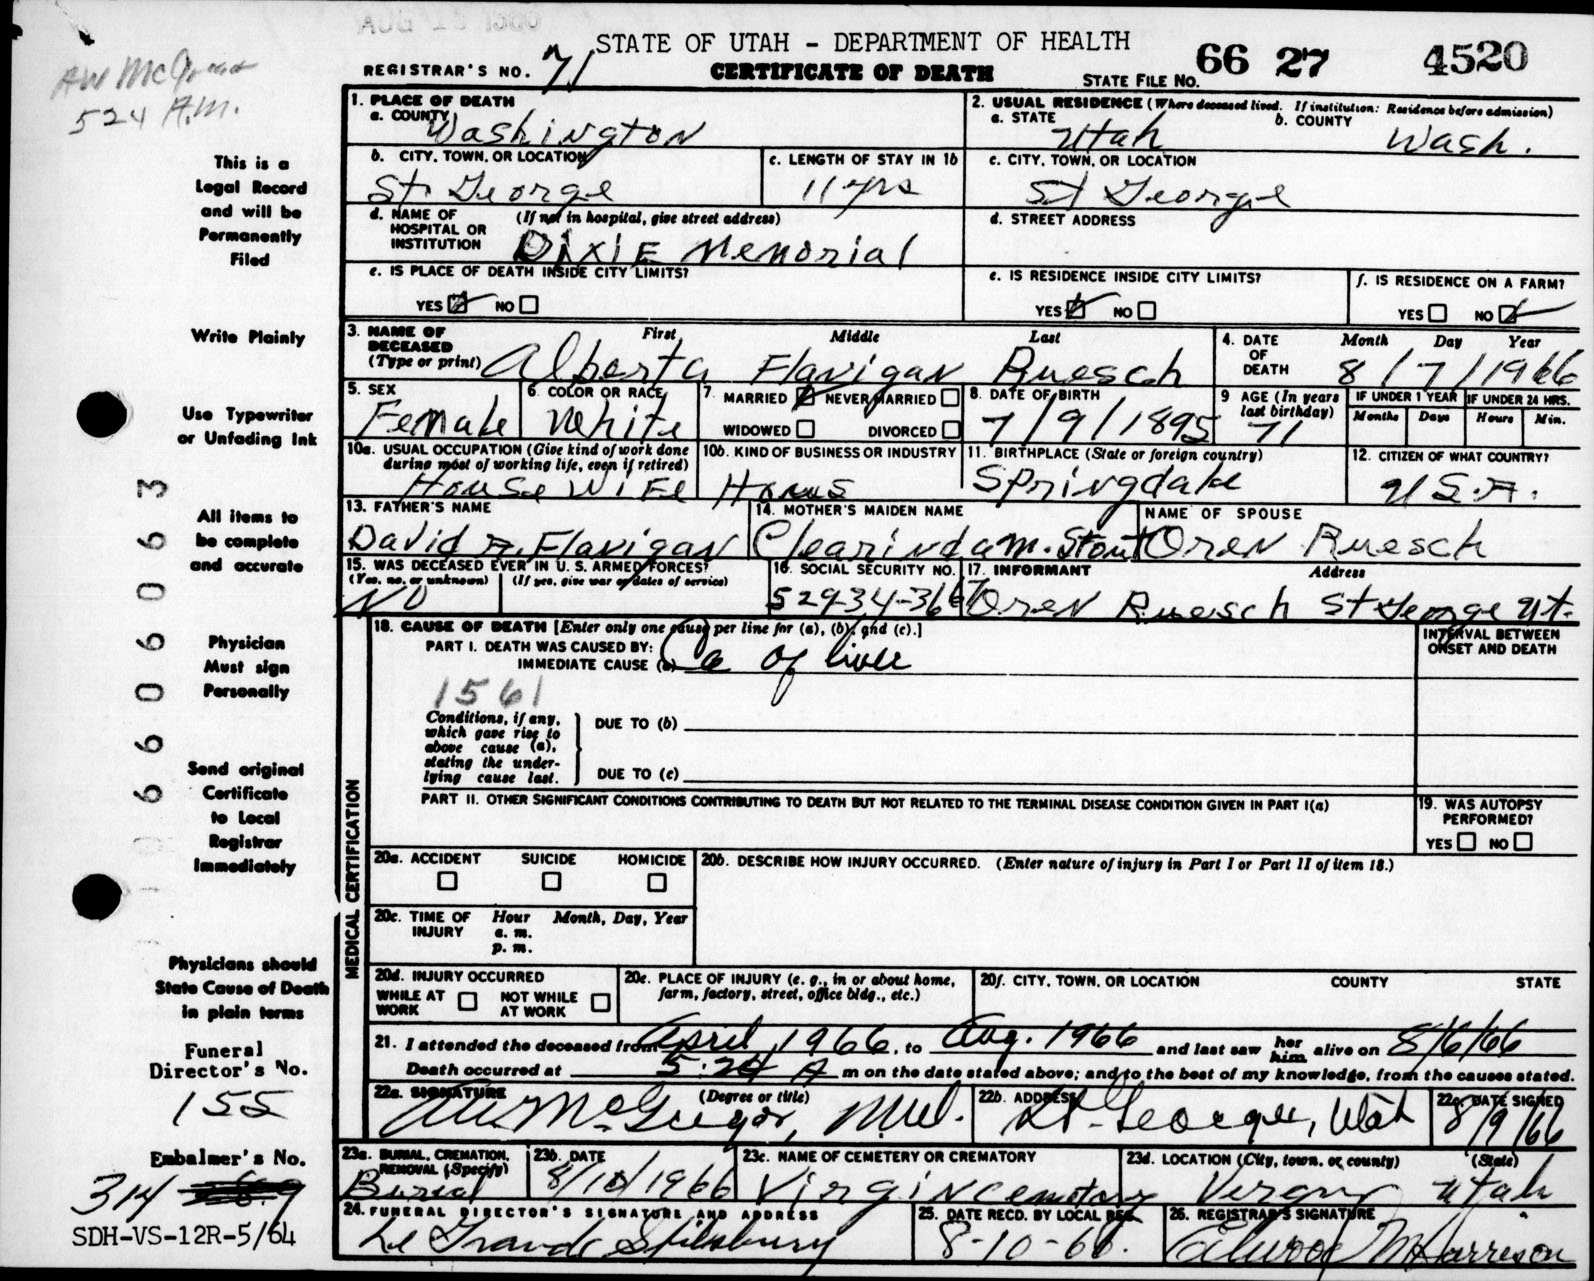 AW McGregor
524 A.M.
STATE OF UTAH - DEPARTMENT OF HEALTH
REGISTRAR'S NO. 71
CERTIFICATE OF DEATH
STATE FILE NO. 66 27 4520
This is a
Legal Record
and will be
Permanently
Filed
Write Plainly
Use Typewriter
or Unfading Ink
All items to
be complete
and accurate
Physician
Must sign
Personally
Send original
Certificate
to Local
Registrar
Immediately
Physicians should
State Cause of Death
in plain terms
Funeral
Director's No.
155
Embalmer's No.
314
SDH-VS-12R-5/64
66060063
1. PLACE OF DEATH
a. COUNTY Washington
2. USUAL RESIDENCE (Where deceased lived. If institution: Residence before admission)
a. STATE Utah b. COUNTY Wash.
b. CITY, TOWN, OR LOCATION St George
c. LENGTH OF STAY IN 1b 11 yrs
c. CITY, TOWN, OR LOCATION St George
d. NAME OF HOSPITAL OR INSTITUTION (If not in hospital, give street address) Dixie Memorial
d. STREET ADDRESS
e. IS PLACE OF DEATH INSIDE CITY LIMITS?
YES NO
e. IS RESIDENCE INSIDE CITY LIMITS?
YES NO
f. IS RESIDENCE ON A FARM?
YES NO
3. NAME OF DECEASED (Type or print) First Middle Last
Alberta Flanigan Ruesch
4. DATE OF DEATH Month Day Year
8/7/1966
5. SEX Female
6. COLOR OR RACE White
7. MARRIED NEVER MARRIED
WIDOWED DIVORCED
8. DATE OF BIRTH 7/9/1895
9 AGE (In years last birthday) 71
IF UNDER 1 YEAR Months Days
IF UNDER 24 HRS. Hours Min.
10a. USUAL OCCUPATION (Give kind of work done during most of working life, even if retired) House Wife
10b. KIND OF BUSINESS OR INDUSTRY
11. BIRTHPLACE (State or foreign country) Springdale
12. CITIZEN OF WHAT COUNTRY? U.S.A.
13. FATHER'S NAME David A. Flanigan
14. MOTHER'S MAIDEN NAME Clearinda M. Stout
NAME OF SPOUSE Oren Ruesch
15. WAS DECEASED EVER IN U. S. ARMED FORCES?
(Yes, no, or unknown) (If yes, give war or dates of service)
NO
16. SOCIAL SECURITY NO. 529-34-3667
17. INFORMANT Address
Oren Ruesch St George Ut.
18. CAUSE OF DEATH [Enter only one cause per line for (a), (b), and (c).]
INTERVAL BETWEEN ONSET AND DEATH
PART I. DEATH WAS CAUSED BY:
IMMEDIATE CAUSE (a) Ca of liver
1561
Conditions, if any,
which gave rise to
above cause (a),
stating the under-
lying cause last.
DUE TO (b)
DUE TO (c)
PART II. OTHER SIGNIFICANT CONDITIONS CONTRIBUTING TO DEATH BUT NOT RELATED TO THE TERMINAL DISEASE CONDITION GIVEN IN PART I(a)
19. WAS AUTOPSY PERFORMED?
YES NO
MEDICAL CERTIFICATION
20a. ACCIDENT SUICIDE HOMICIDE
20b. DESCRIBE HOW INJURY OCCURRED. (Enter nature of injury in Part I or Part II of item 18.)
20c. TIME OF INJURY Hour Month, Day, Year
a. m.
p. m.
20d. INJURY OCCURRED
WHILE AT WORK NOT WHILE AT WORK
20e. PLACE OF INJURY (e. g., in or about home, farm, factory, street, office bldg., etc.)
20f. CITY, TOWN, OR LOCATION COUNTY STATE
21. I attended the deceased from April 1966, to Aug. 1966 and last saw her him alive on 8/6/66
Death occurred at 5:24 A m on the date stated above; and to the best of my knowledge, from the causes stated.
22a. SIGNATURE (Degree or title) AW McGregor, M.D.
22b. ADDRESS St. George, Utah
22c. DATE SIGNED 8/9/66
23a. BURIAL, CREMATION, REMOVAL (Specify) Burial
23b. DATE 8/10/1966
23c. NAME OF CEMETERY OR CREMATORY Virgin Cemetary
23d. LOCATION (City, town, or county) (State) Utah
24. FUNERAL DIRECTOR'S SIGNATURE AND ADDRESS
Le Grande Spilsbury
25. DATE RECD. BY LOCAL REG. 8-10-66.
26. REGISTRAR'S SIGNATURE
Elwood M Harrison